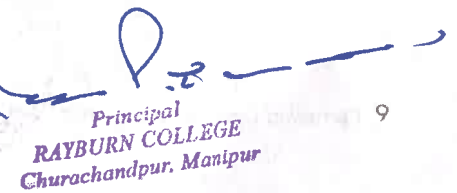 Principal
RAYBURN COLLEGE
Churachandpur, Manipur
9